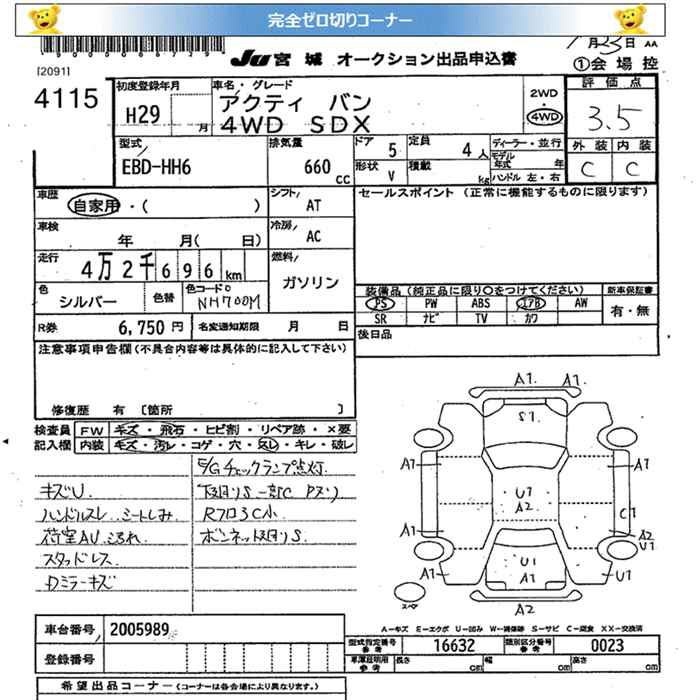 完全ゼロ切りコーナー
[2091]
JU 宮城 オークション出品申込書
月 23日 AA
①会場控
4115
初度登録年月
H29 月
車名・グレード
アクティ バン
4WD SDX
2WD
4WD
評価点
3.5
外装 内装
C C
型式
EBD-HH6
排気量
660 CC
ドア 5
定員 4人
形状 V
積載 kg
ディーラー・並行
モデル年式 年
ハンドル 左・右
車歴
自家用・( )
シフト
AT
セールスポイント (正常に機能するものに限ります)
車検
年 月( 日)
冷房
AC
走行
4万2千696km
燃料
ガソリン
色
シルバー
色替
色コードNo
NH700M
装備品 (純正品に限り○をつけてください)
新車保証書
PS PW ABS エアB AW
有・無
SR ナビ TV カワ
R券 6,750円
名変通知期限 月 日
後日品
注意事項申告欄 (不具合内容等は具体的に記入して下さい)
修復歴 有 [箇所 ]
検査員 記入欄
FW キズ・飛石・ヒビ割・リペア跡・×要
内装 キズ・汚レ・コゲ・穴・スレ・キレ・破レ
E/Gチェックランプ点灯
キズU
下廻りS 一部C Pヌリ
ハンドルスレ シートしみ
Rフロ3C小
荷室AU よごれ
ボンネット廻りS
スタッドレス
Dミラーキズ
A1 A1
S1
A1 A1
U1
A2
A1 C1
A2
U1
A1 U1
U1
A1
A2
スペア
A-キズ E-エクボ U-凹み W-補修跡 S-サビ C-腐食 XX-交換済
車台番号 2005989
登録番号
型式指定番号 参考 16632
類別区分番号 参考 0023
車庫証明用 参考 長さ cm 幅 cm 高さ cm
希望出品コーナー (コーナーは各会場により異なります。)